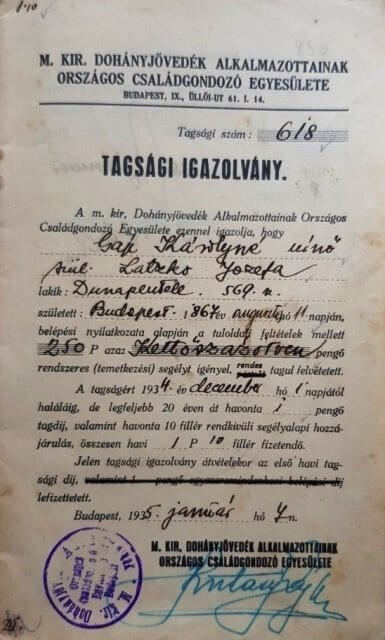 M. KIR. DOHÁNYJÖVEDÉK ALKALMAZOTTAINAK
ORSZÁGOS CSALÁDGONDOZÓ EGYESÜLETE
BUDAPEST, IX., ÜLLŐI-UT 61. I. 14.
Tagsági szám: 618
TAGSÁGI IGAZOLVÁNY.
A m. kir. Dohányjövedék Alkalmazottainak Országos
Családgondozó Egyesülete ezennel igazolja, hogy
Gap Károlyné
szül. Latzko Jozefa
lakik: Dunapentele 569. n.
született: Budapest 1867 év augusztus hó 11 napján,
belépési nyilatkozata alapján a tuloldali feltételek mellett
250 P azaz Kettőszázötven pengő
rendszeres (temetkezési) segélyt igényel, rendes
tagul felvétetett.
A tagságért 1934. év december hó 1 napjától
haláláig, de legfeljebb 20 éven át havonta 1 pengő
tagdíj, valamint havonta 10 fillér rendkívüli segélyalapi hozzá-
járulás, összesen havi 1 P 10 fillér fizetendő.
Jelen tagsági igazolvány átvételekor az első havi tag-
sági díj, valamint 1 pengő egyszersmindenkori belépési díj
lefizettetett.
Budapest, 1935 január hó 7 n.
M. KIR. DOHÁNYJÖVEDÉK ALKALMAZOTTAINAK
ORSZÁGOS CSALÁDGONDOZÓ EGYESÜLETE